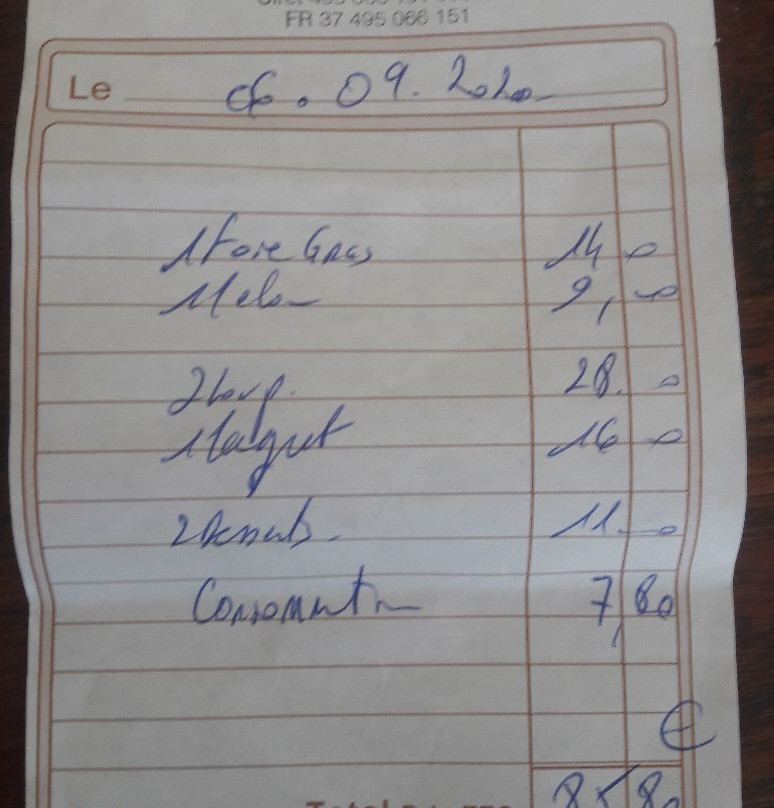 FR 37 495 066 151
Le 06.09.2020
1 Foie Gras 14
1 Melon 9,
2 Loup. 28.
1 Magret 16
2 Desserts 11
Consommation 7,80
€
85,80